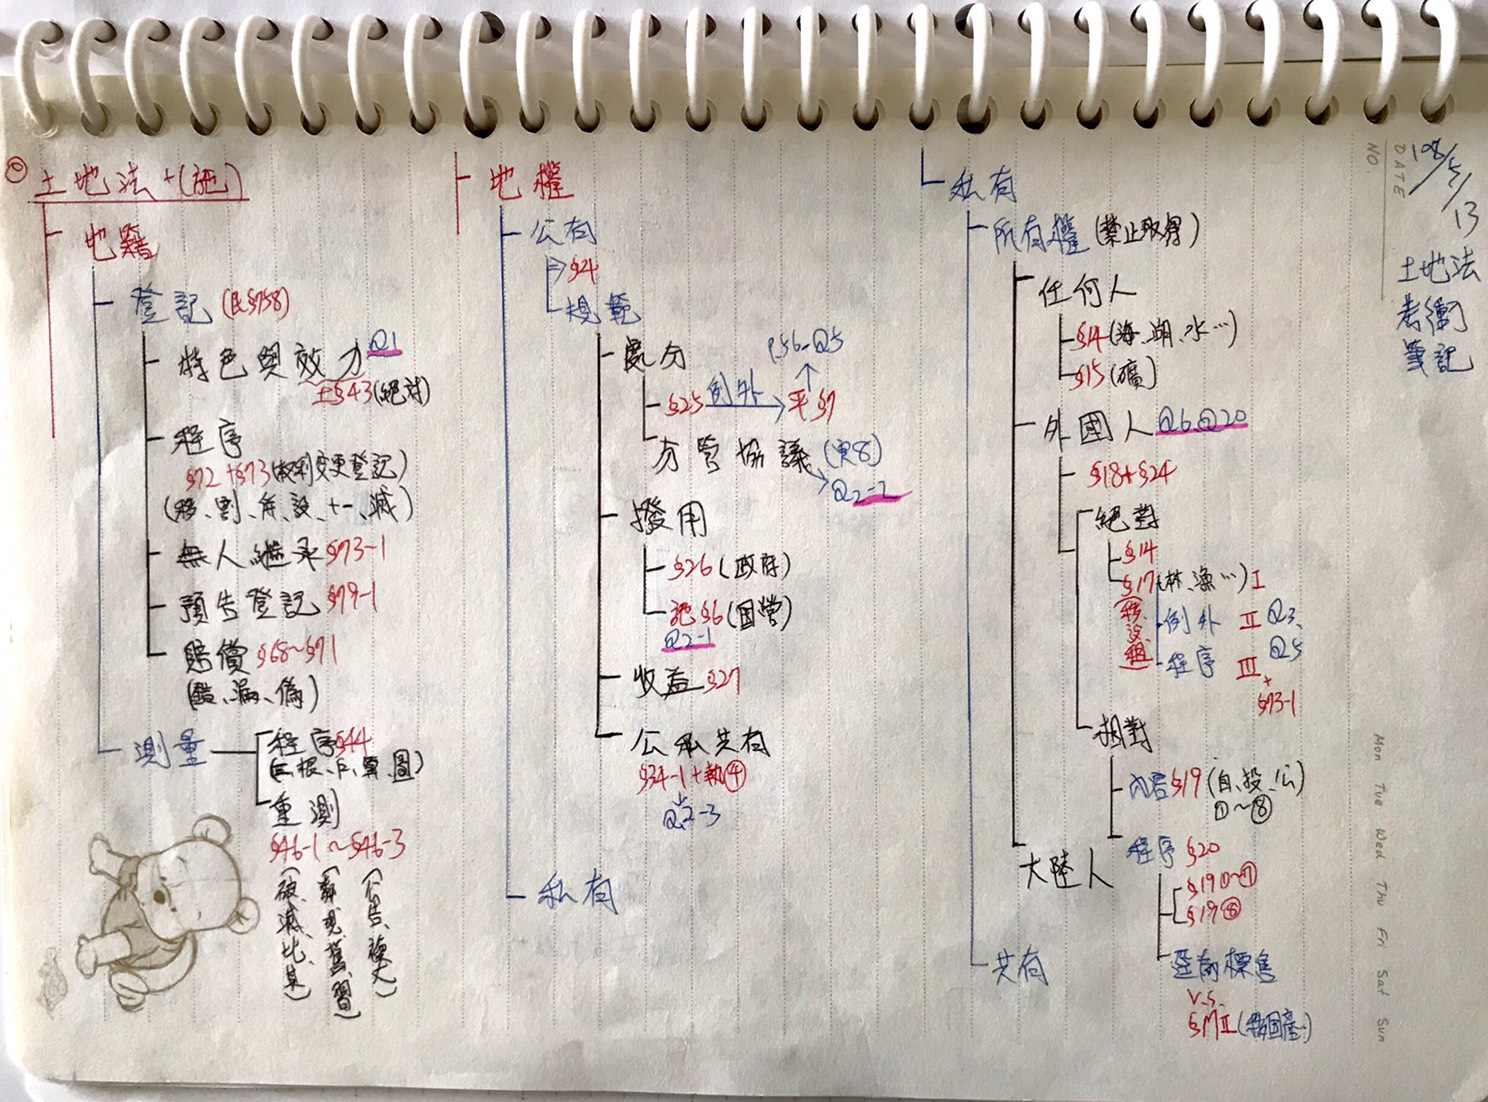 土地法+(施)
地籍
登記(民§758)
特色與效力 Q1
土§43(絕對)
程序
§72+§73(權利變更登記)
(移、割、併、設、+-、減)
無人繼承§73-1
預告登記§79-1
賠償§68~§71
(錯、漏、偽)
測量
程序§44
圖)
重測
§46-1~§46-3
(破、滅、比、其)
(鄰、現、舊、習)
(公告、
地權
公有
⇒§4
規範
處分
§25 例外 → 平§7
↑
分管協議(実8)
Q2-2
撥用
§26(政府)
施§6(国營)
Q2-1
收益§27
公私共有
§34-1+執④
↓
Q2-3
私有
私有
所有權(禁止取得)
任何人
§14(海、湖、水…)
§15(礦)
外國人 Q6、Q20
§18+§24
絕對
§14
§17(林、漁…)I
(移、設、租)
例外 II Q3、Q5
程序 III
+
§73-1
相對
內容§19(自、投、公)
①~⑧
程序§20
§19①~⑦
§19⑧
逕為標售
v.s.
§17II(移国産…)
大陸人
共有
DATE 108/5/13
NO.
土地法
老衝
筆記
Mon Tue Wed Thu Fri Sat Sun